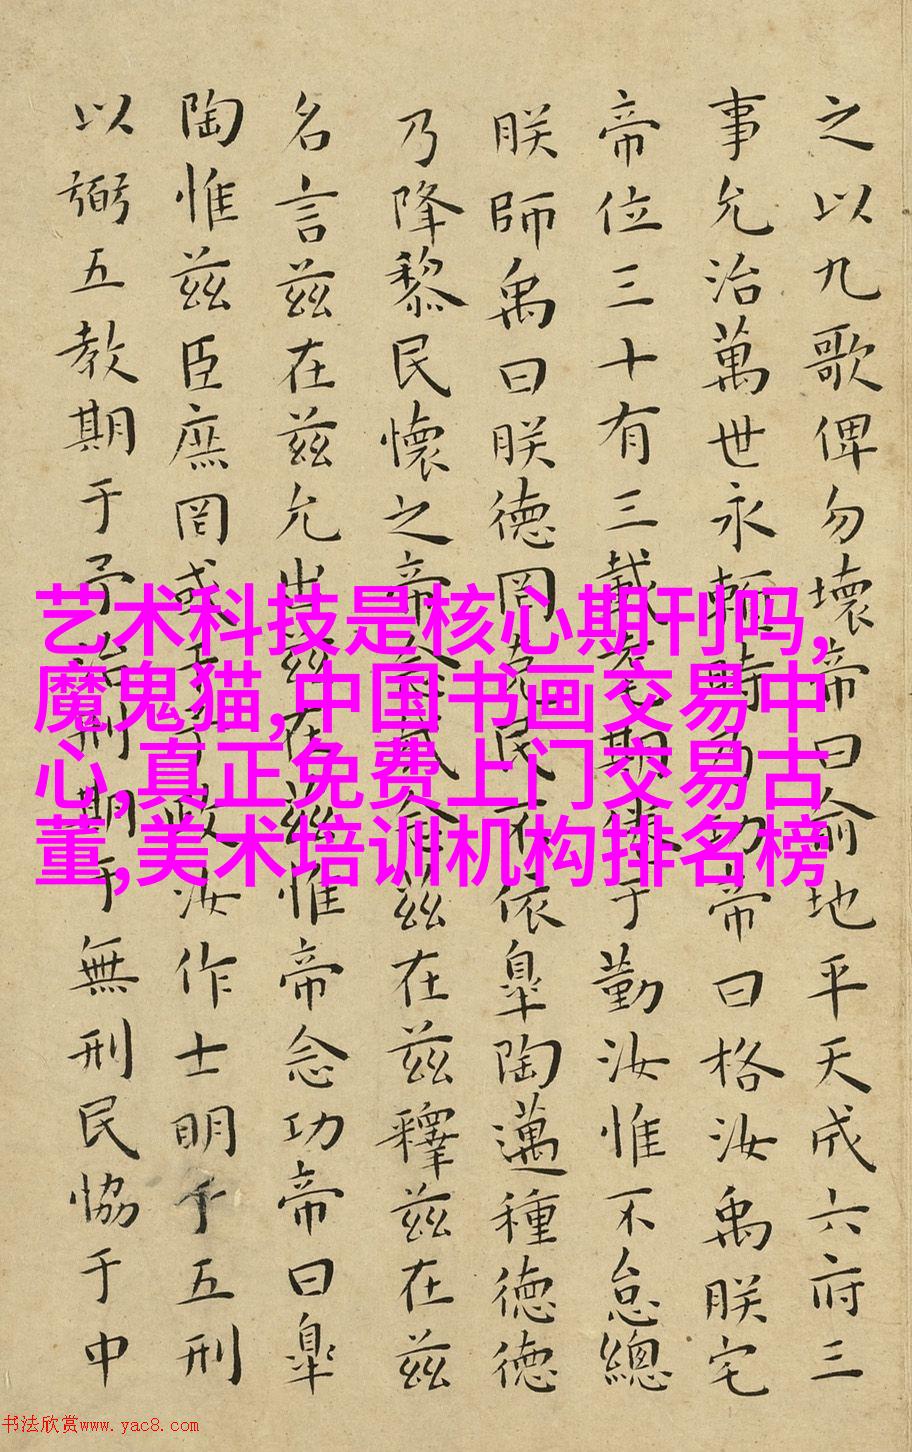 之以九歌俾勿壞帝曰俞地平天成六府三
事允治萬世永賴時乃功帝曰格汝禹朕宅
帝位三十有三載耄期倦于勤汝惟不怠總
朕師禹曰朕德罔克民不依皐陶邁種德德
乃降黎民懷之帝念哉念兹在兹釋兹在兹
名言兹在兹允出兹在兹惟帝念功帝曰皐
陶惟兹臣庶罔或于予政汝作士明于五刑
以弼五教期于予治刑期于無刑民協于中
艺术科技是核心期刊吗,
魔鬼猫,中国书画交易中
心,真正免费上门交易古
董,美术培训机构排名榜
书法欣赏www.yac8.com